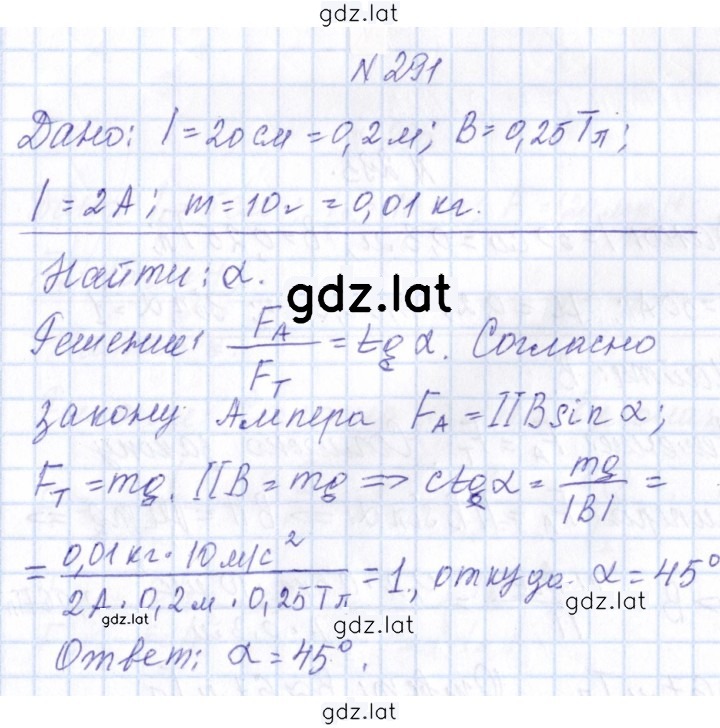 gdz.lat
N 291
Дано: l = 20 см = 0,2 м; B = 0,25 Тл;
I = 2 А; m = 10 г = 0,01 кг.
Найти: α.
gdz.lat
Решение: F_A / F_T = tg α. Согласно
закону Ампера F_A = IIB sin α;
F_T = mg. IIB = mg => ctg α = mg / IBl =
= 0,01 кг · 10 м/с² / 2 А · 0,2 м · 0,25 Тл = 1, откуда α = 45°
gdz.lat gdz.lat
gdz.lat
Ответ: α = 45°.
gdz.lat